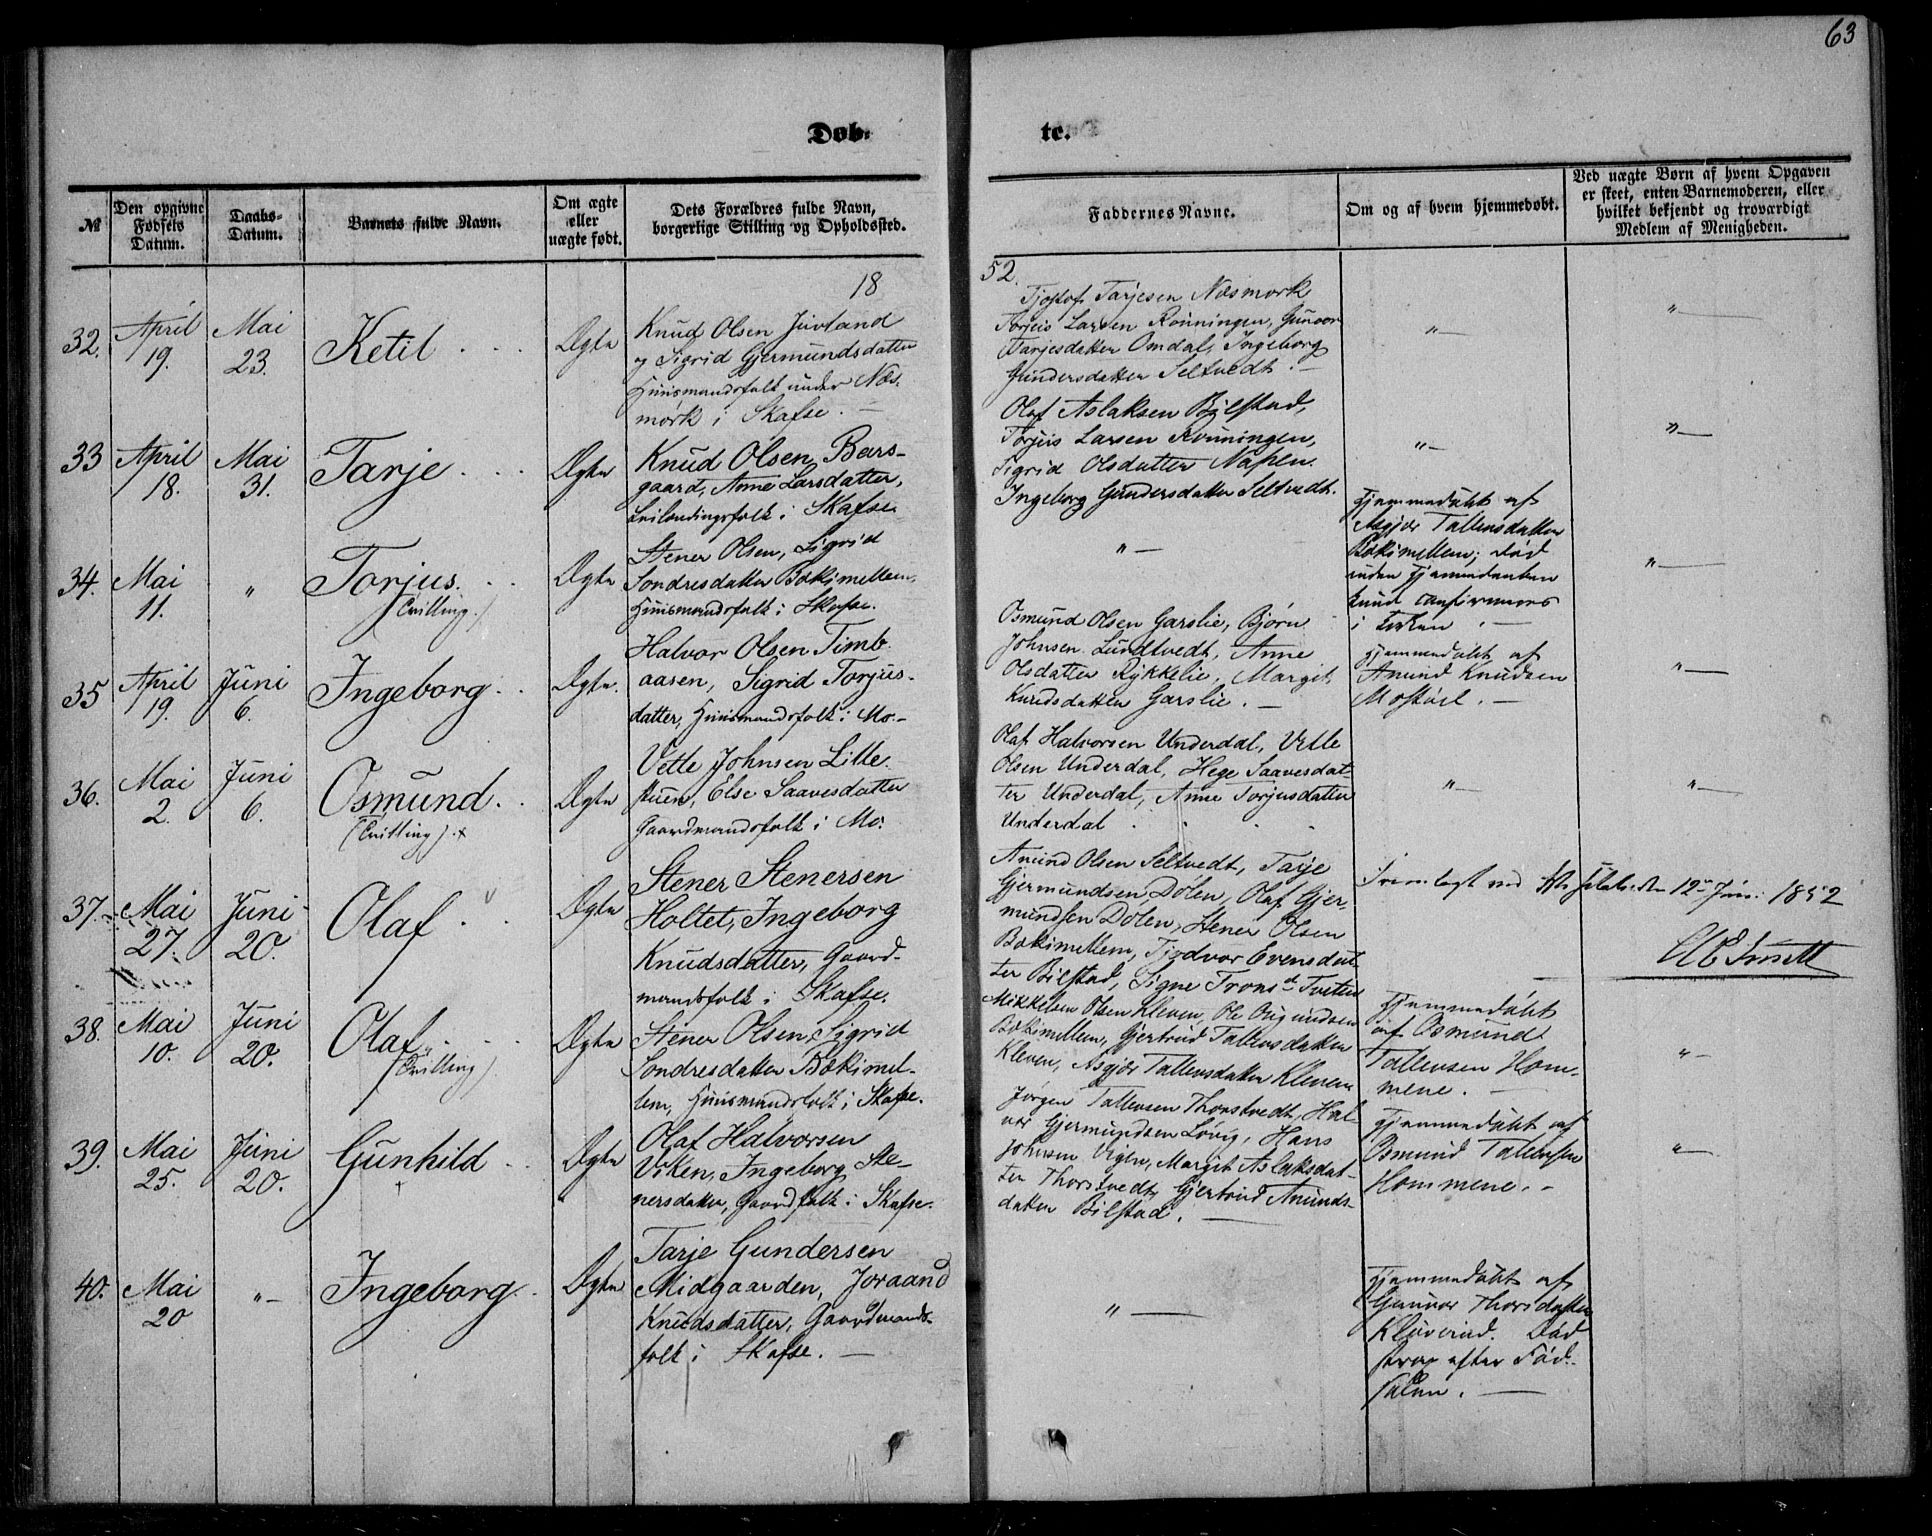 63
Døb-
te.
№
Den opgivne Fødsels Datum.
Daabs-Datum.
Barnets fulde Navn.
Om ægte eller uægte født.
Dets Forældres fulde Navn, borgerlige Stilling og Opholdssted.
Faddernes Navne.
Om og af hvem hjemmedøbt.
Ved uægte Børn af hvem Opgaven er skeet, enten Barnemoderen, eller hvilket bekjendt og troværdigt Medlem af Menigheden.
18
52.
32.
April 19.
Mai 23.
Ketil
Ægte
Knud Olsen Juvland
og Sigrid Gjermundsdatter
Huusmandsfolk under Næs-
mork i Skafse. —
Tjostof Tarjesen Næsmork
Torjeis Larsen Rønningen, Gunvor
Tarjesdatter Omdal, Ingeborg
Gundersdatter Seltvedt. —
" —
" —
33
April 18.
Mai 31.
Tarje
Ægte
Knud Olsen Bars-
gaard, Anne Larsdatter,
Leilændingsfolk i Skafse
Olaf Aslaksen Bilstad,
Torjeis Larsen Rønningen,
Sigrid Olsdatter Napen.
Ingeborg Gundersdatter Seltvedt.
" —
" —
34.
Mai 11.
"
Torjus.
(Tvilling.)
Ægte
Stener Olsen, Sigrid
Sondresdatter Bøkimellem,
Huusmandsfolk i Skafse.
" —
Hjemmedøbt af
Asgjør Tallevsdatter
Bøkimellem; død
inden Hjemmedaaben
kunde confirmeres
i Kirken. —
" —
35
April 19.
Juni 6.
Ingeborg
Ægte.
Halvor Olsen Timb-
aasen, Sigrid Torjus-
datter, Huusmandsfolk i Mo. —
Osmund Olsen Garslie, Bjørn
Johnsen Lundtvedt, Anne
Olsdatter Rykkelie, Margit
Knudsdatter Garslie. —
Hjemmedøbt af
Amund Knudsen
Mostøel. —
" —
36.
Mai 2.
Juni 6.
Osmund.
(Tvilling) . x
Ægte
Vetle Johnsen Lille-
stuen, Else Saavesdatter
Gaardmandsfolk i Mo.
Olaf Halvorsen Underdal, Vetle
Olsen Underdal, Hege Saavesdat-
ter Underdal, Anne Torjusdatter
Underdal
" —
" —
37.
Mai 27.
Juni 20.
Olaf
Ægte
Stener Stenersen
Holtet, Ingeborg
Knudsdatter, Gaard-
mandsfolk i Skafse.
Amund Olsen Seltvedt, Tarje
Gjermundsen Dølen, Olaf Gjer-
mundsen Dølen, Stener Olsen
Bøkimellem, Tjodvor Evensdat-
ter Bilstad, Signe Trons d. Tveiten
Fremlagt ved 12te Juni 1852
38.
Mai 10.
Juni 20.
Olaf
(Tvilling)
Ægte
Stener Olsen, Sigrid
Sondresdatter Bøkimel-
lem, Huusmandsfolk i Skafse.
Mikkelsen Olsen Kleven, Ole Osmundsen
Bøkimellem, Gjertrud Tallevsdatter
Kleven, Asgjør Tallevsdatter Kleven
Hjemmedøbt
af Osmund
Tallevsen Hom-
mene. —
" —
39.
Mai 25.
Juni 20.
Gunhild
Ægte
Olaf Halvorsen
Viken, Ingeborg Ste-
nersdatter, Gaardfolk i Skafse.
Jørgen Tallevsen Thorstvedt, Hal-
vor Gjermundsen Løvig, Hans
Johnsen Vigen, Margit Aslaksdat-
ter Thorstvedt, Gjertrud Amunds-
datter Bilstad. —
Hjemmedøbt af
Osmund Tallevsen
Hommene. —
" —
40.
Mai 20
" —
Ingeborg.
Ægte
Tarje Gundersen
Midgaarden, Joraand
Knudsdatter, Gaardmands-
folk i Skafse. —
" —
Hjemmedøbt af
Gunvor Thorsdatter
Kluverud. Død
strax efter Fød-
selen. —